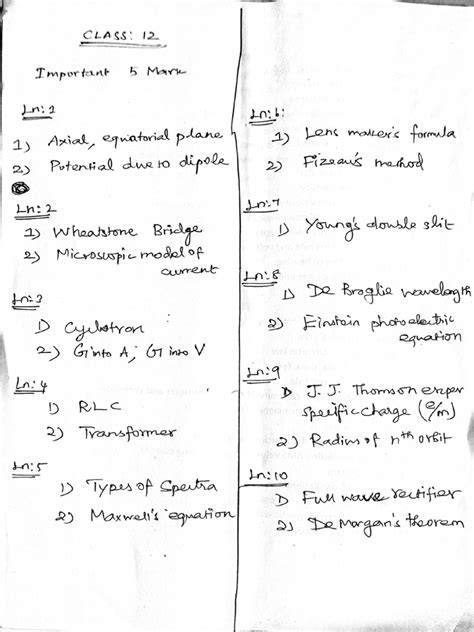 CLASS: 12
Important 5 Mark
Ln:1
1) Axial, equatorial plane
2) Potential due to dipole
Ln:2
1) Wheatstone Bridge
2) Microscopic model of
current
Ln:3
1) Cyclotron
2) G into A, G into V
Ln:4
1) RLC
2) Transformer
Ln:5
1) Types of Spectra
2) Maxwell's equation
Ln:6:
1) Lens maker's formula
2) Fizeau's method
Ln:7
1) Young's double slit
Ln:8
1) De Broglie wavelength
2) Einstein photoelectric
equation
Ln:9
1) J.J. Thomson exper
specific charge (e/m)
2) Radius of nth orbit
Ln:10
1) Full wave rectifier
2) De Morgan's theorem